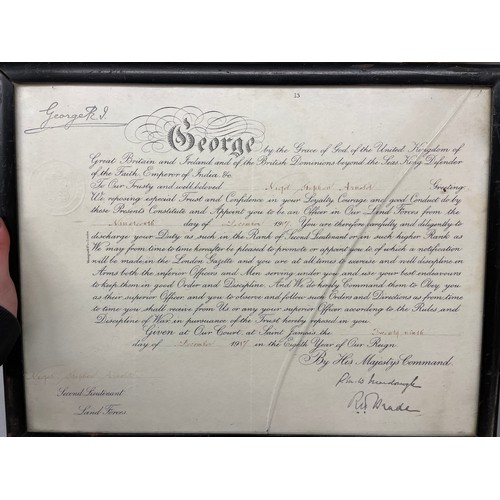 George R.I.
13
George by the Grace of God of the United Kingdom of
Great Britain and Ireland and of the British Dominions beyond the Seas King Defender
of the Faith, Emperor of India, &c.
To Our Trusty and well beloved Stephen Arnold Greeting
We reposing especial Trust and Confidence in your Loyalty Courage and good Conduct do by
these Presents Constitute and Appoint you to be an Officer in Our Land Forces from the
day of 1917. You are therefore carefully and diligently to
discharge your Duty as such in the Rank of Second Lieutenant or in such higher Rank as
We may from time to time hereafter be pleased to promote or appoint you to, of which a notification
will be made in the London Gazette and you are at all times to exercise and well discipline in
Arms both the inferior Officers and Men serving under you and use your best endeavours
to keep them in good Order and Discipline. And We do hereby Command them to Obey you
as their superior Officer and you to observe and follow such Orders and Directions as from time
to time you shall receive from Us or any your superior Officer according to the Rules and
Discipline of War in pursuance of the Trust hereby reposed in you.
Given at Our Court, at Saint James's the
day of 1917 in the Eighth Year of Our Reign.
By His Majesty's Command.
Second Lieutenant
Land Forces